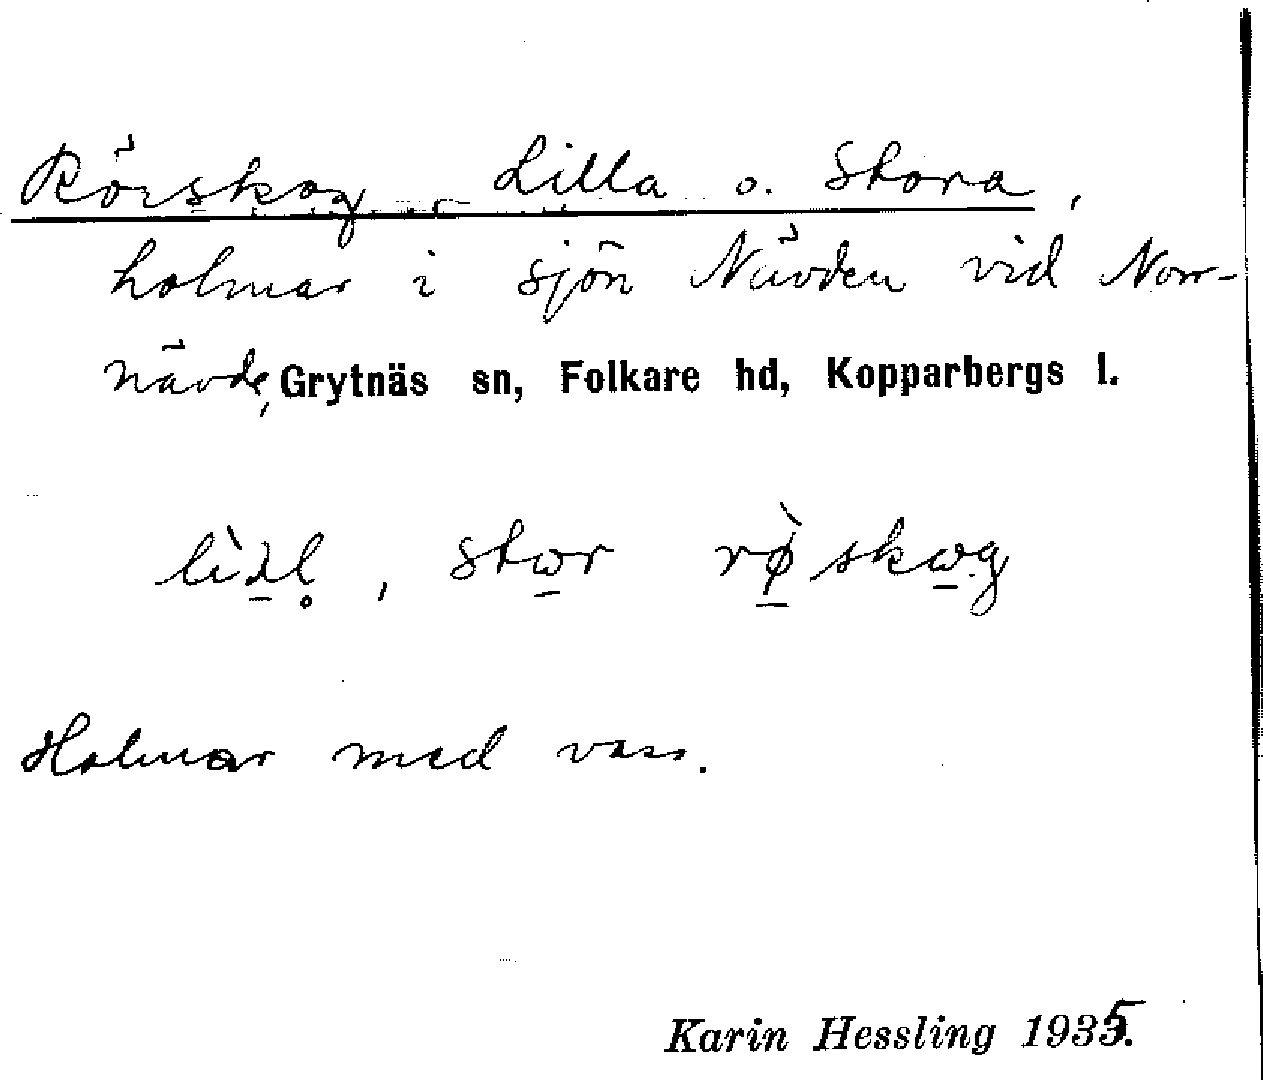 Rörskog, Lilla o. Stora,
holmar i sjön Nävden vid Norr-
nävde, Grytnäs sn, Folkare hd, Kopparbergs l.
stωr rø̀skωg
Holmar med vass.
Karin Hessling 1935.